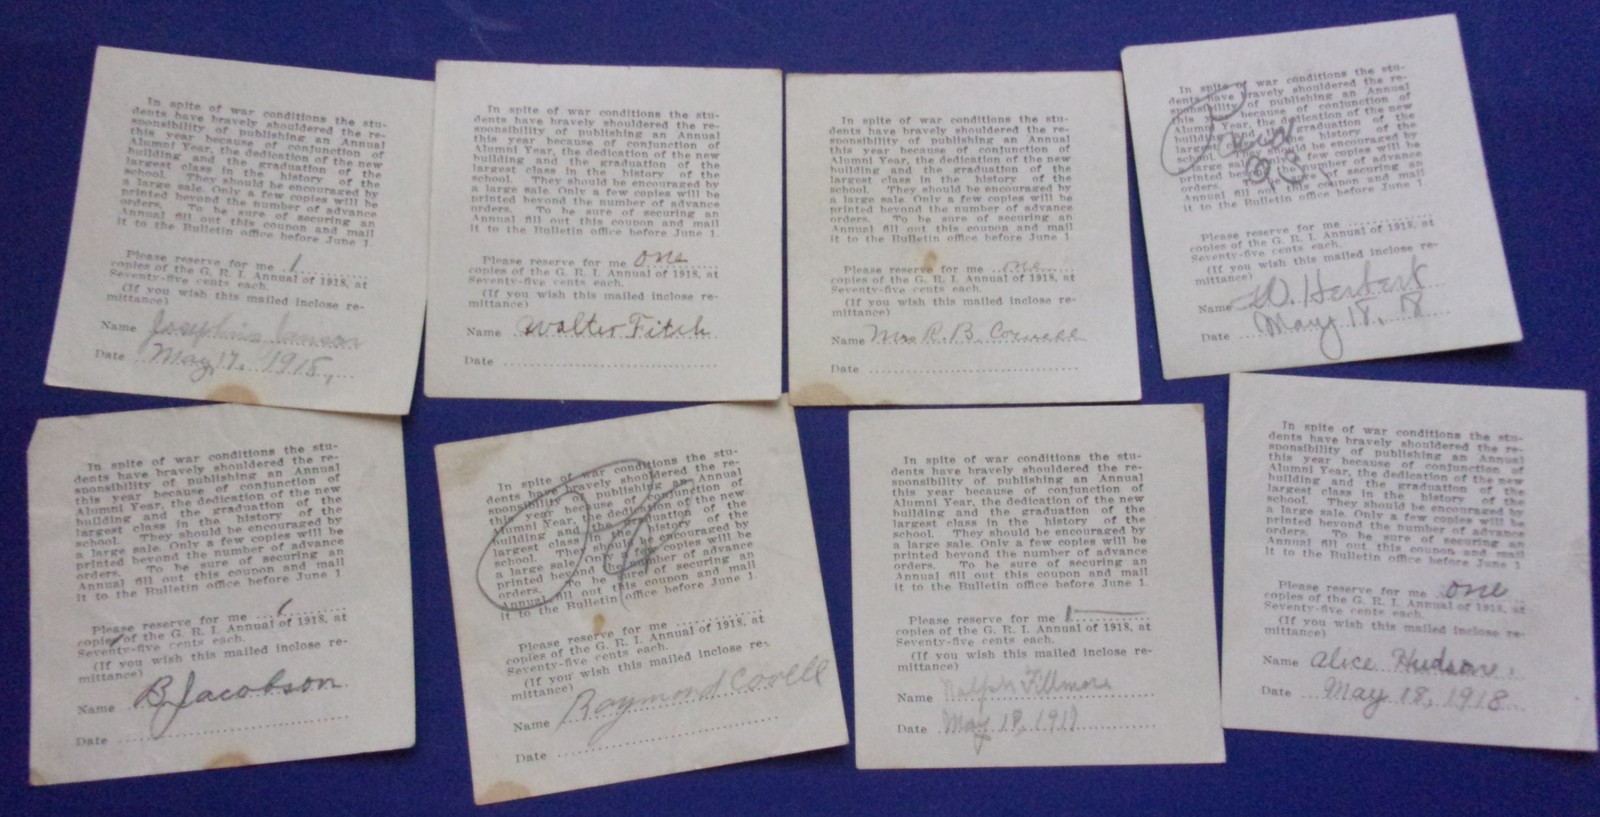 In spite of war conditions the stu-
dents have bravely shouldered the re-
sponsibility of publishing an Annual
this year because of conjunction of
Alumni Year, the dedication of the new
building and the graduation of the
largest class in the history of the
school. They should be encouraged by
a large sale. Only a few copies will be
printed beyond the number of advance
orders. To be sure of securing an
Annual fill out this coupon and mail
it to the Bulletin office before June 1.
Please reserve for me 1
copies of the G. R. I. Annual of 1918, at
Seventy-five cents each.
(If you wish this mailed inclose re-
mittance)
Name Josephine
Date May 17, 1918,
In spite of war conditions the stu-
dents have bravely shouldered the re-
sponsibility of publishing an Annual
this year because of conjunction of
Alumni Year, the dedication of the new
building and the graduation of the
largest class in the history of the
school. They should be encouraged by
a large sale. Only a few copies will be
printed beyond the number of advance
orders. To be sure of securing an
Annual fill out this coupon and mail
it to the Bulletin office before June 1.
Please reserve for me one
copies of the G. R. I. Annual of 1918, at
Seventy-five cents each.
(If you wish this mailed inclose re-
mittance)
Name Walter Fitch
Date
In spite of war conditions the stu-
dents have bravely shouldered the re-
sponsibility of publishing an Annual
this year because of conjunction of
Alumni Year, the dedication of the new
building and the graduation of the
largest class in the history of the
school. They should be encouraged by
a large sale. Only a few copies will be
printed beyond the number of advance
orders. To be sure of securing an
Annual fill out this coupon and mail
it to the Bulletin office before June 1.
Please reserve for me one
copies of the G. R. I. Annual of 1918, at
Seventy-five cents each.
(If you wish this mailed inclose re-
mittance)
Name Mrs R. B.
Date
In spite of war conditions the stu-
dents have bravely shouldered the re-
sponsibility of publishing an Annual
this year because of conjunction of
Alumni Year, the dedication of the new
building and the graduation of the
largest class in the history of the
school. They should be encouraged by
a large sale. Only a few copies will be
printed beyond the number of advance
orders. To be sure of securing an
Annual fill out this coupon and mail
it to the Bulletin office before June 1.
Paid
Please reserve for me
copies of the G. R. I. Annual of 1918, at
Seventy-five cents each.
(If you wish this mailed inclose re-
mittance)
Name W. Herbert
Date May 18, 18
In spite of war conditions the stu-
dents have bravely shouldered the re-
sponsibility of publishing an Annual
this year because of conjunction of
Alumni Year, the dedication of the new
building and the graduation of the
largest class in the history of the
school. They should be encouraged by
a large sale. Only a few copies will be
printed beyond the number of advance
orders. To be sure of securing an
Annual fill out this coupon and mail
it to the Bulletin office before June 1
Please reserve for me 1
copies of the G. R. I. Annual of 1918, at
Seventy-five cents each.
(If you wish this mailed inclose re-
mittance)
Name B. Jacobson
Date
In spite of war conditions the stu-
dents have bravely shouldered the re-
sponsibility of publishing an Annual
this year because of conjunction of
Alumni Year, the dedication of the new
building and the graduation of the
largest class in the history of the
school. They should be encouraged by
a large sale. Only a few copies will be
printed beyond the number of advance
orders. To be sure of securing an
Annual fill out this coupon and mail
it to the Bulletin office before June 1.
Please reserve for me
copies of the G. R. I. Annual of 1918, at
Seventy-five cents each.
(If you wish this mailed inclose re-
mittance)
Name Raymond Covell
Date
In spite of war conditions the stu-
dents have bravely shouldered the re-
sponsibility of publishing an Annual
this year because of conjunction of
Alumni Year, the dedication of the new
building and the graduation of the
largest class in the history of the
school. They should be encouraged by
a large sale. Only a few copies will be
printed beyond the number of advance
orders. To be sure of securing an
Annual fill out this coupon and mail
it to the Bulletin office before June 1.
Please reserve for me 1
copies of the G. R. I. Annual of 1918, at
Seventy-five cents each.
(If you wish this mailed inclose re-
mittance)
Name Ralph Fillmore
Date May 18, 191
In spite of war conditions the stu-
dents have bravely shouldered the re-
sponsibility of publishing an Annual
this year because of conjunction of
Alumni Year, the dedication of the new
building and the graduation of the
largest class in the history of the
school. They should be encouraged by
a large sale. Only a few copies will be
printed beyond the number of advance
orders. To be sure of securing an
Annual fill out this coupon and mail
it to the Bulletin office before June 1.
Please reserve for me one
copies of the G. R. I. Annual of 1918, at
Seventy-five cents each.
(If you wish this mailed inclose re-
mittance)
Name Alice Hudson.
Date May 18, 1918